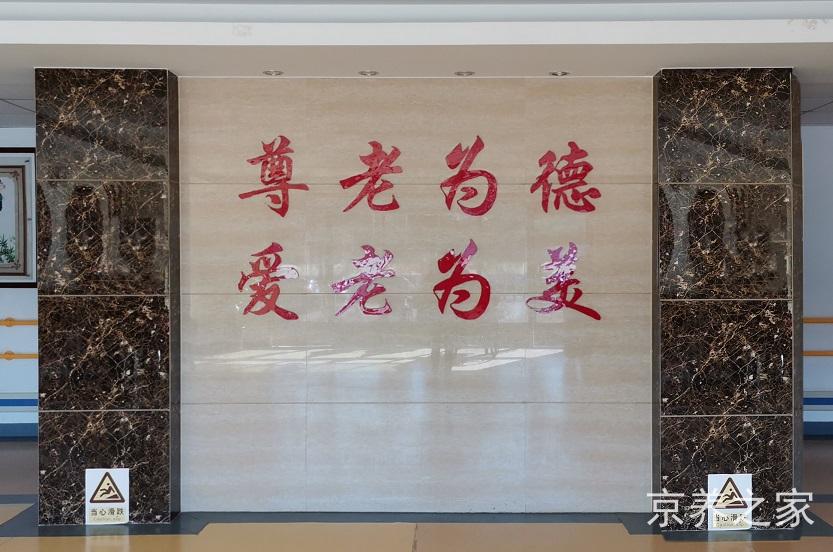 尊老为德
爱老为美
当心滑跌
当心滑跌
京养之家